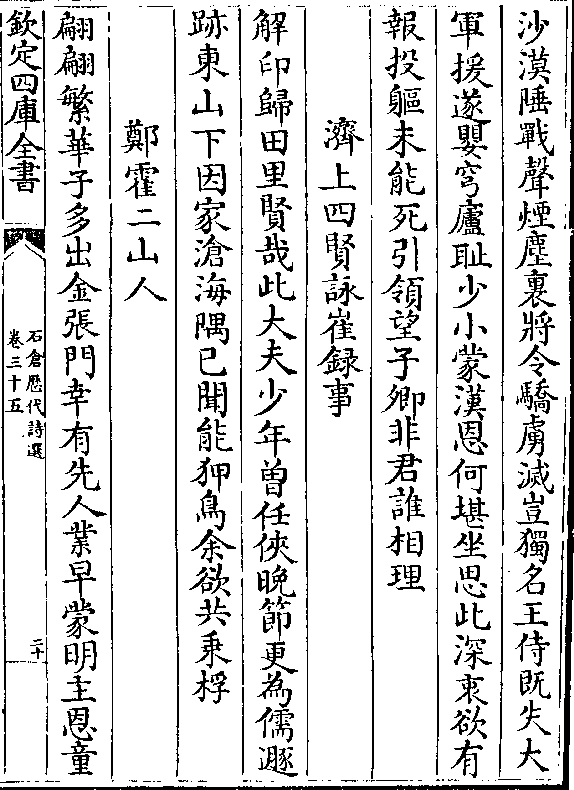 沙漠陲戰聲煙塵裏將令驕虜滅豈獨名王侍既失大
軍援遂嬰穹廬耻少小蒙漢恩何堪坐思此深衷欲有
報投軀未能死引領望子卿非君誰相理
濟上四賢詠崔録事
解印歸田里賢哉此大夫少年曽任俠晚節更為儒遯
跡東山下因家滄海隅已聞能狎鳥余欲共乘桴
鄭霍二山人
翩翩繁華子多出金張門幸有先人業早蒙明主恩童
欽定四庫全書
石倉歷代詩選
卷三十五
二十